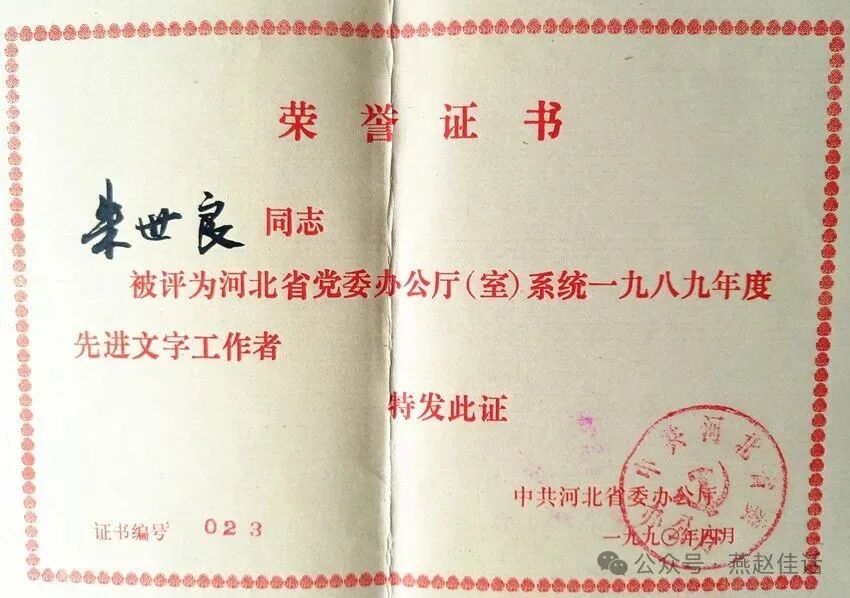 荣誉证书
朱世良 同志
被评为河北省党委办公厅(室)系统一九八九年度
先进文字工作者
特发此证
中共河北省委办公厅
证书编号 023
一九九〇年四月
中共河北省委
办公厅
公众号·燕赵佳话